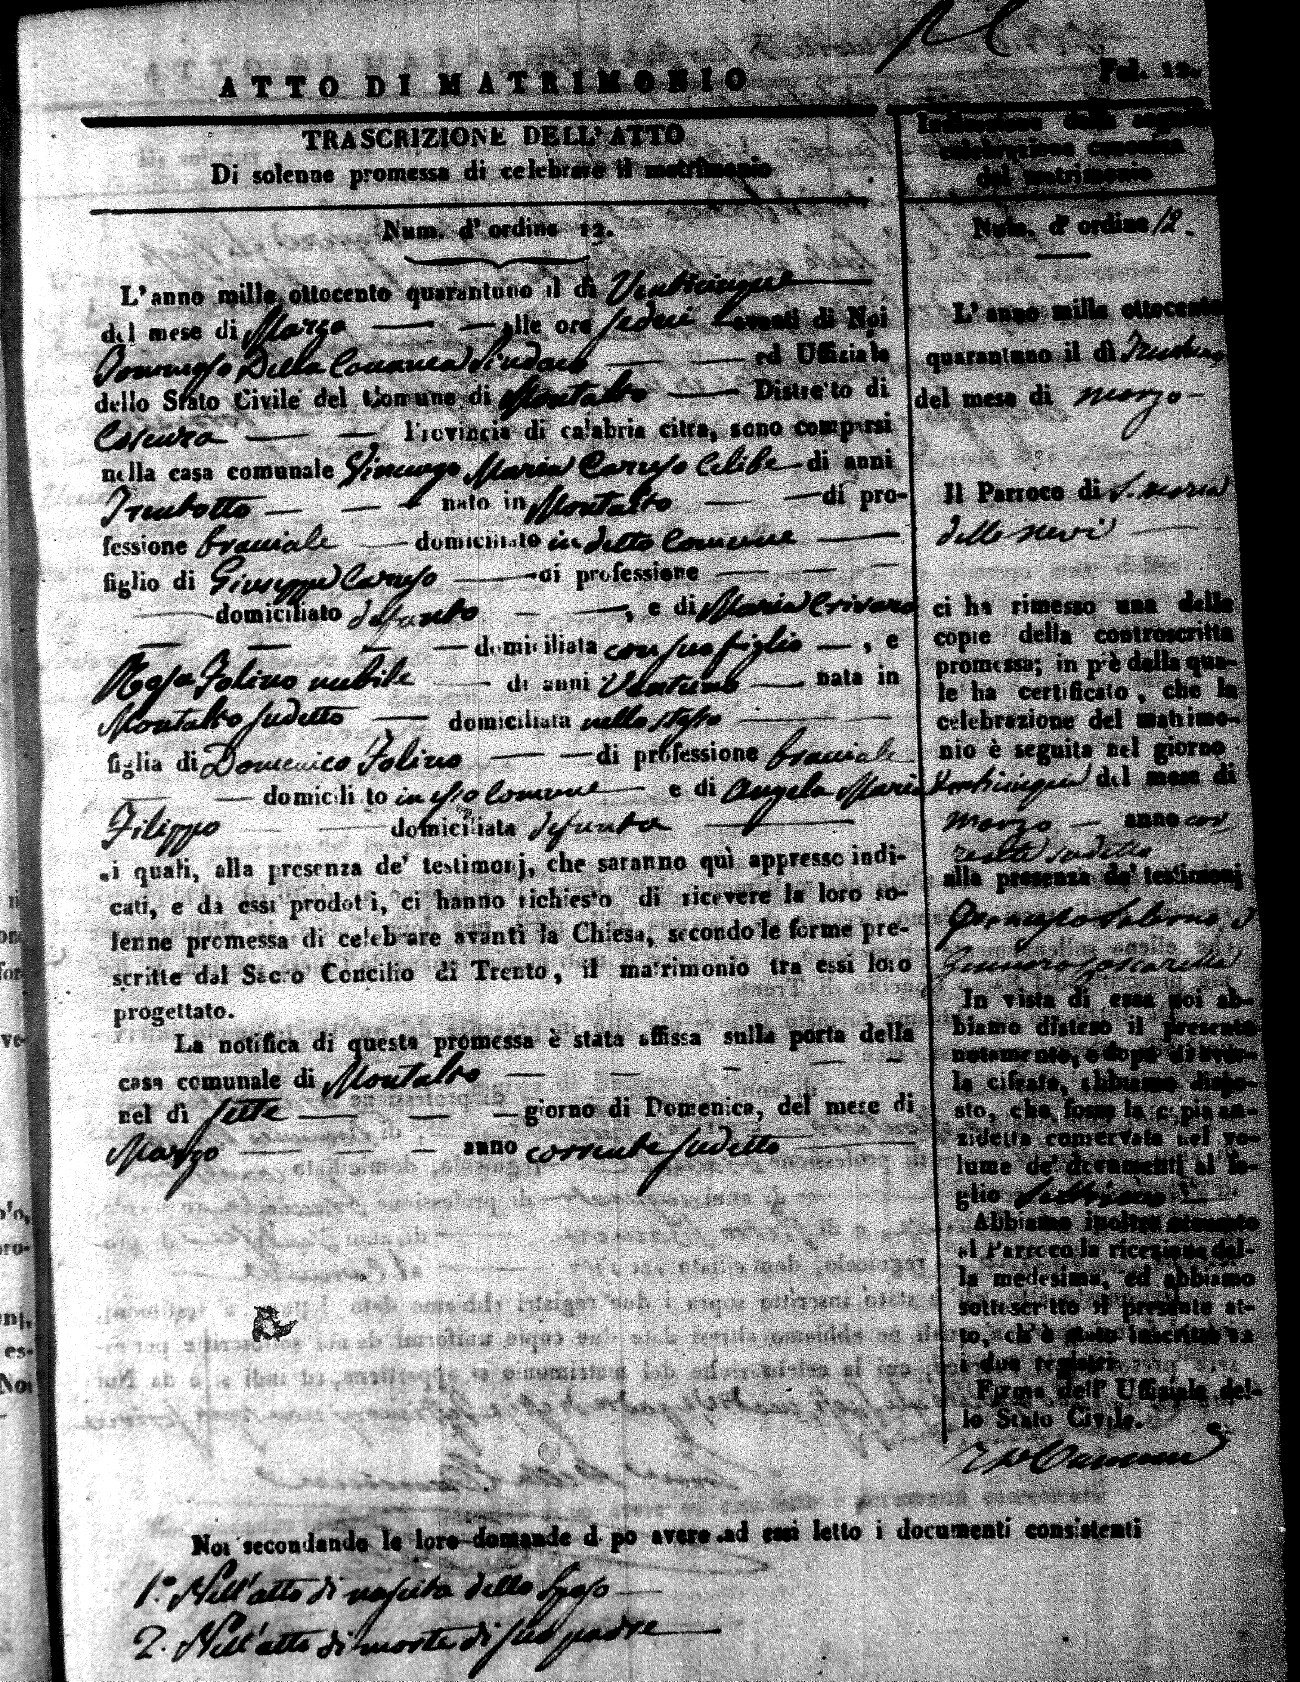 Fol. 12.
ATTO DI MATRIMONIO
TRASCRIZIONE DELL'ATTO
Di solenne promessa di celebrare il matrimonio
Num. d'ordine 12.
L'anno mille ottocento quarantuno il dì Venticinque
del mese di Marzo alle ore sedeci avanti di Noi
Della Sindaco ed Uffiziale
dello Stato Civile del Comune di Montalto Distretto di
Cosenza Provincia di calabria citra, sono comparsi
nella casa comunale Maria Caruso Celibe di anni
Trentotto nato in Montalto di pro-
fessione bracciale domiciliato in detto Comune
figlio di Giuseppe Caruso di professione
domiciliato defunto , e di Maria Crivaro
domiciliata con suo figlio , e
Rosa Folino nubile di anni Ventuno nata in
Montalto sudetto domiciliata nello stesso
figlia di Domenico Folino di professione bracciale
domicili to in esso Comune e di Angela Maria
Filippo domiciliata defunta
i quali, alla presenza de' testimonj, che saranno quì appresso indi-
cati, e da essi prodotti, ci hanno richiesto di ricevere la loro so-
lenne promessa di celebrare avanti la Chiesa, secondo le forme pre-
scritte dal Sacro Concilio di Trento, il matrimonio tra essi loro
progettato.
La notifica di questa promessa è stata affissa sulla porta della
casa comunale di Montalto
nel dì sette giorno di Domenica, del mese di
Marzo anno corrente sudetto
Indicazione della seguita
celebrazione canonica
del matrimonio
Num. d'ordine 12.
L'anno mille ottocento
quarantuno il dì
del mese di marzo
Il Parroco di S. Maria
delle nevi
ci ha rimesso una delle
copie della controscritta
promessa; in p'è della qua-
le ha certificato, che la
celebrazione del matrimo-
nio è seguita nel giorno
Venticinque del mese di
marzo anno cor
rente sudetto
alla presenza de' testimonj
Salerno, e
Gennaro
In vista di essa noi ab-
biamo disteso il presente
notamento, e dopo di aver-
la cifrata, abbiamo dispo-
sto, che fosse la copia an-
zidetta conservata nel vo-
lume de' documenti al fo-
glio
Abbiamo inoltre accusato
al Parroco la ricezione del-
la medesima, ed abbiamo
sottoscritto il presente at-
to, ch'è stato inscritto su
i due registri.
Firma dell' Uffiziale del-
lo Stato Civile.
Noi secondando le loro domande d po avere ad essi letto i documenti consistenti
1.° Nell'atto di nascita dello Sposo
2. Nell'atto di morte di suo padre